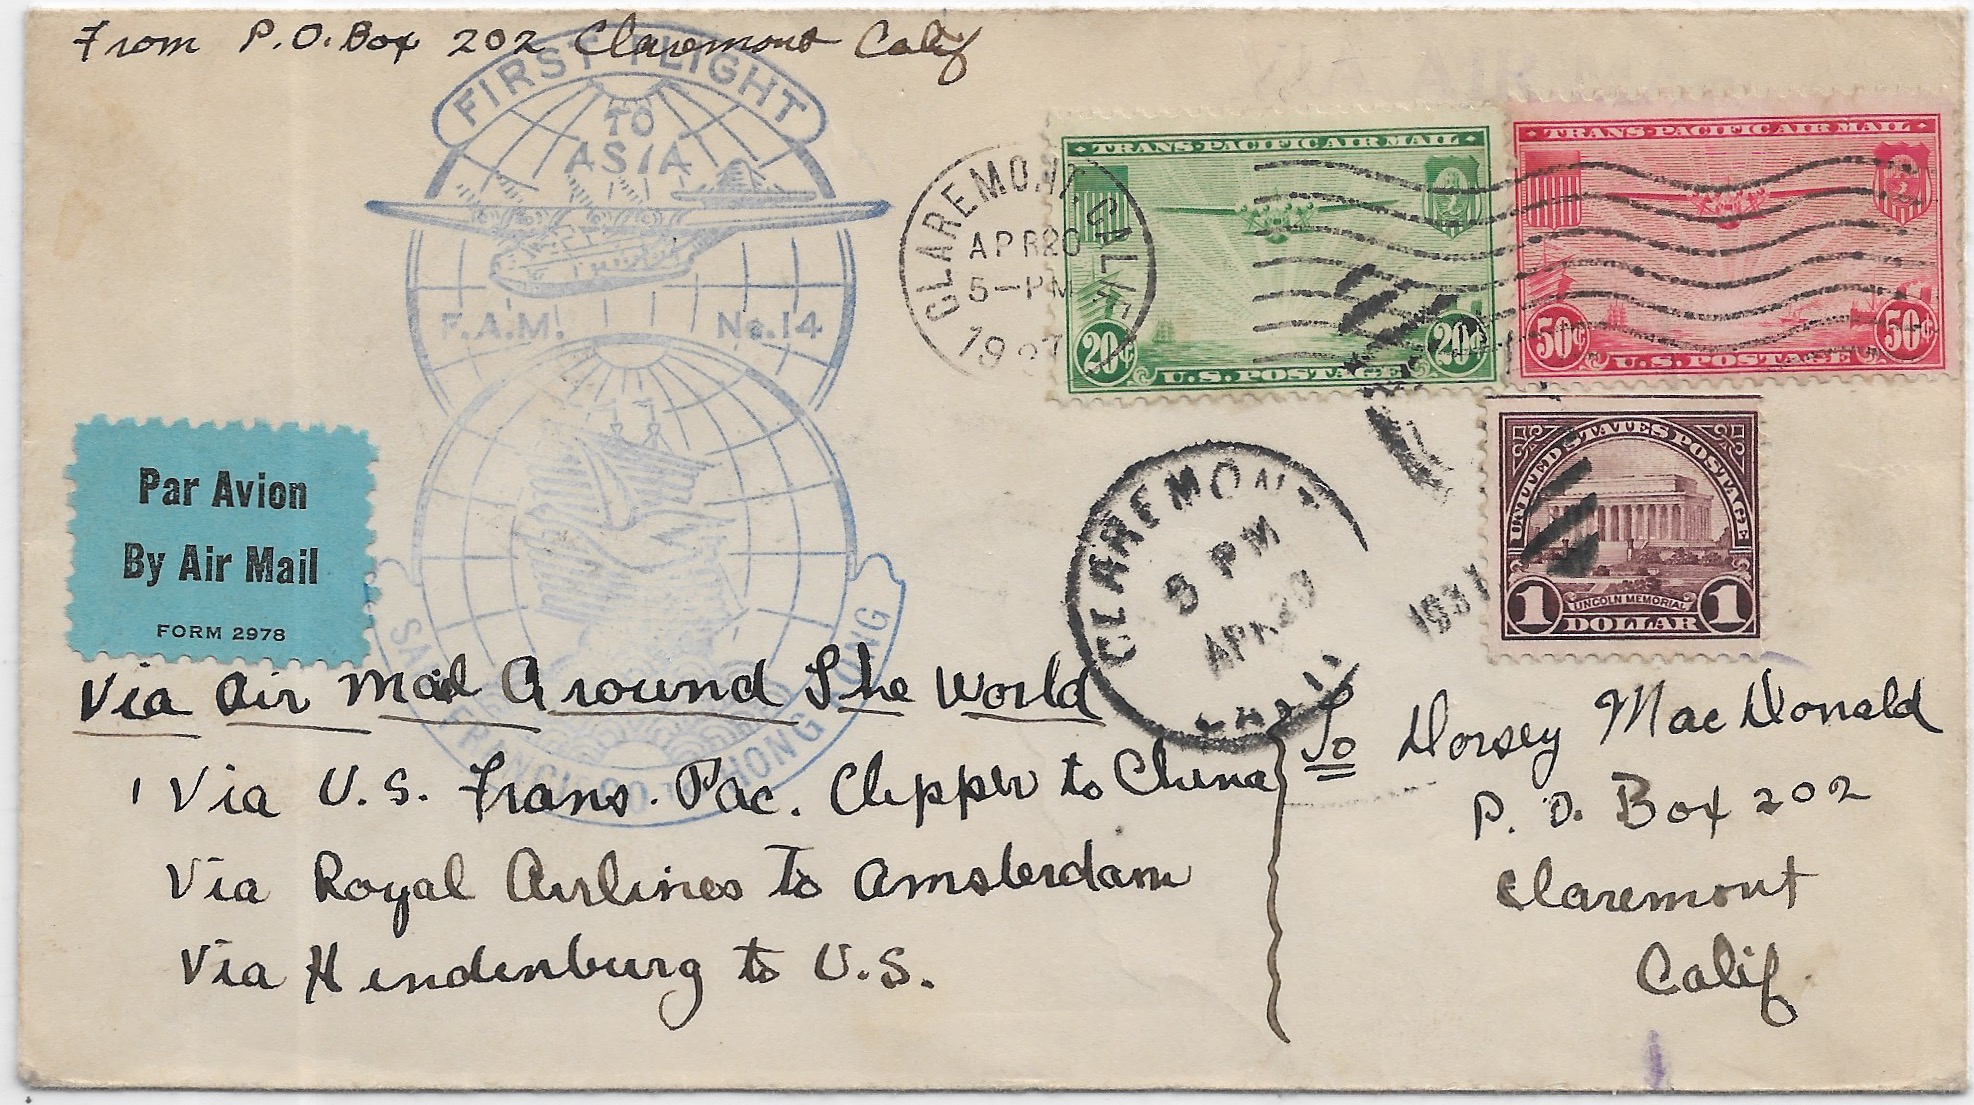 From P.O. Box 202 Claremont Calif
FIRST FLIGHT
TO
ASIA
F.A.M. No. 14
SAN FRANCISCO TO HONG KONG
CLAREMONT, CALIF.
APR 20
5-PM
1937
TRANS-PACIFIC AIR MAIL
20¢ 20¢
U.S. POSTAGE
TRANS-PACIFIC AIR MAIL
50¢ 50¢
U.S. POSTAGE
UNITED STATES POSTAGE
LINCOLN MEMORIAL
1 DOLLAR 1
CLAREMONT
5 PM
APR 20
1937
CALIF
Par Avion
By Air Mail
FORM 2978
Via Air Mail Around The World
Via U.S. Trans. Pac. Clipper to China
Via Royal Airlines To Amsterdam
Via Hindenburg to U.S.
To Dorsey MacDonald
P. O. Box 202
Claremont
Calif.